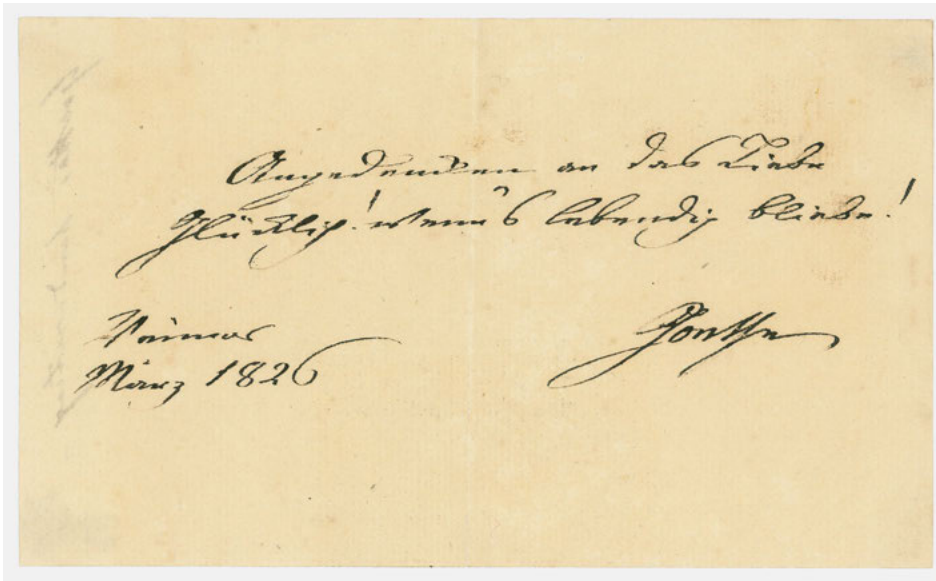 Angedencken an das Liebe
Glücklich! wenn's lebendig bliebe!
Weimar
März 1826
Goethe